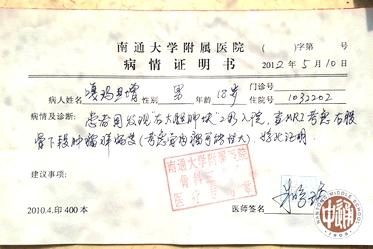 南通大学附属医院
(　　)字第　　号
病情证明书
2012年5月10日
病人姓名 嘎玛丑增 性别 男 年龄 18岁 门诊号
住院号 1032202
病情及诊断: 患者因发现右大腿肿块 入院, 查MRI考虑右股
骨下段肿瘤样病变(考虑骨肉瘤可能性大) 特此证明.
建议事项:
南通大学附属医院
骨科
医疗专用章
2010.4.印400本
医师签名